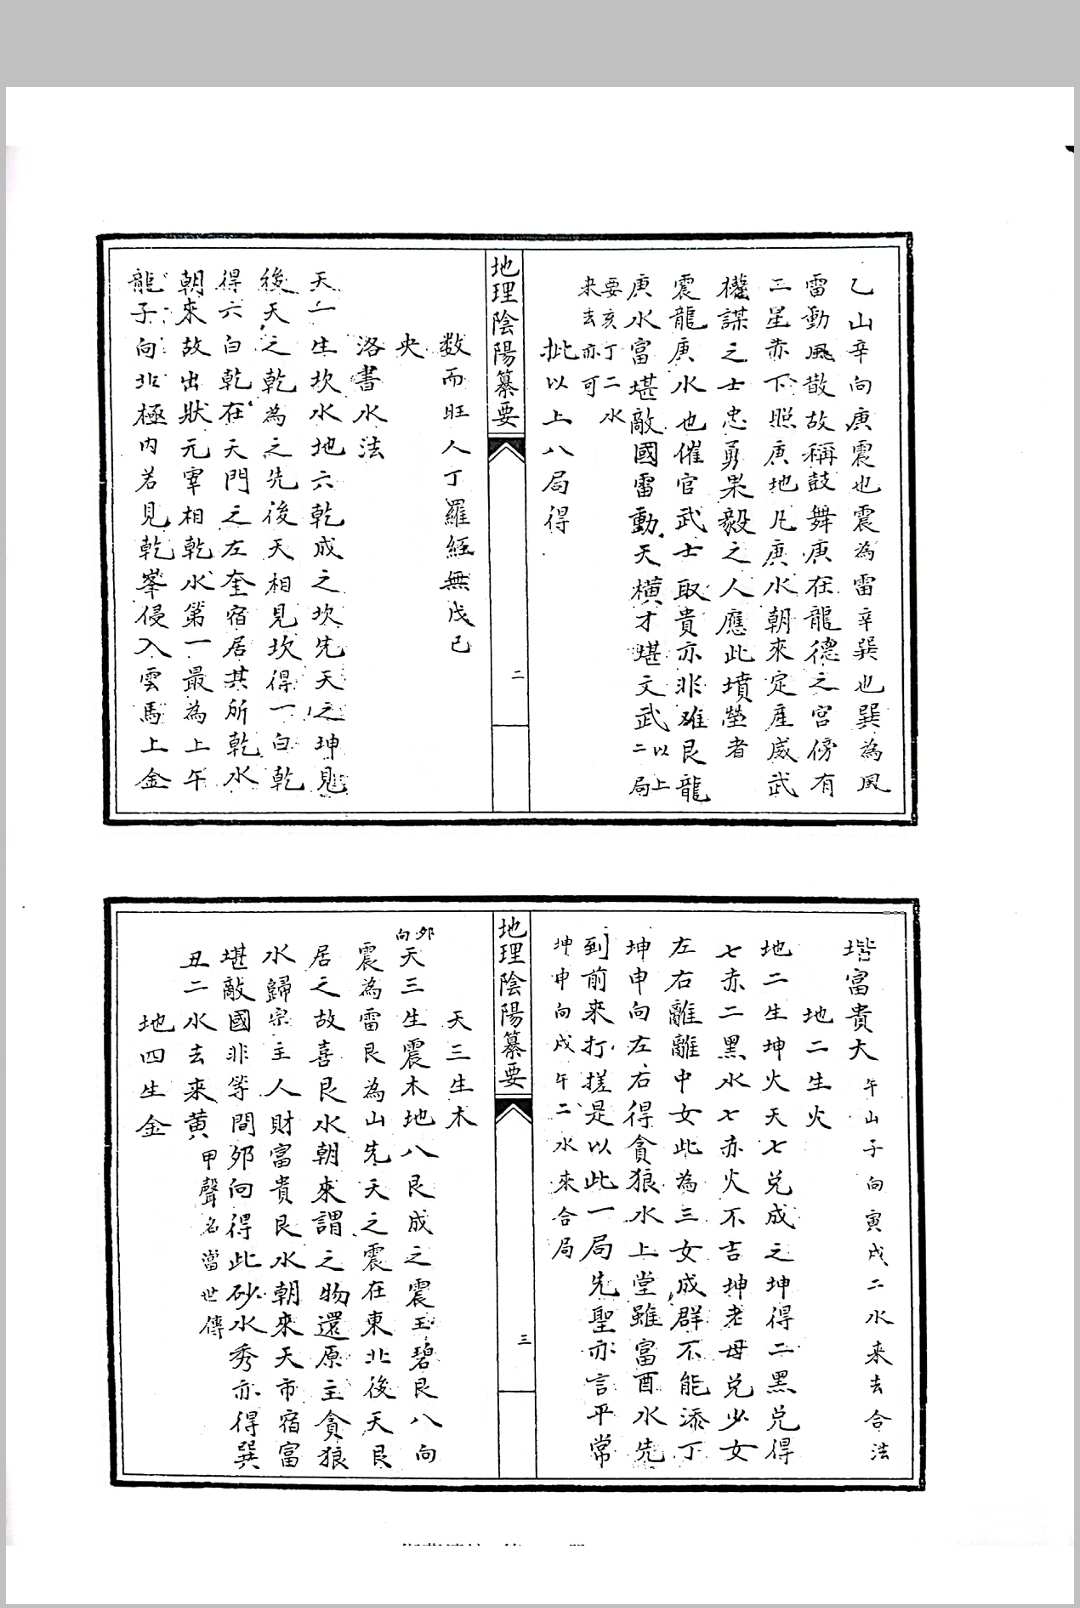 乙山辛向庚震也震為雷辛巽也巽為風
雷動風散故稱鼓舞庚在龍德之宮傍有
三星赤下照庚地凡庚水朝來定産威武
權謀之士忠勇果毅之人應此墳塋者
震龍庚水也催官武士取貴亦非雄艮龍
庚水富堪敵國雷動天横才堪文武以上二局
要亥丁二水
来去亦可
批以上八局得
地理陰陽纂要
二
数而旺人丁羅經無戊己
央
洛書水法
天一生坎水地六乾成之坎先天之坤見
後天之乾為之先後天相見坎得一白乾
得六白乾在天門之左奎宿居其所乾水
朝來故出狀元宰相乾水第一最為上午
龍子向北極内若見乾峯侵入雲馬上金
堦富貴大午山子向寅戌二水来去合法
地二生火
地二生坤火天七兑成之坤得二黑兑得
七赤二黑水七赤火不吉坤老母兑少女
左右離離中女此為三女成群不能添丁
坤申向左右得貪狼水上堂雖富酉水先
到前来打搓是以此一局先聖亦言平常
坤申向戌午二水來合局
地理陰陽纂要
三
天三生木
卯向
天三生震木地八艮成之震玉碧艮八向
震為雷艮為山先天之震在東北後天艮
居之故喜艮水朝來謂之物還原主貪狼
水歸宗主人財富貴艮水朝來天市宿富
堪敵國非等間卯向得此砂水秀亦得巽
丑二水去来黄甲聲名當世傳
地四生金